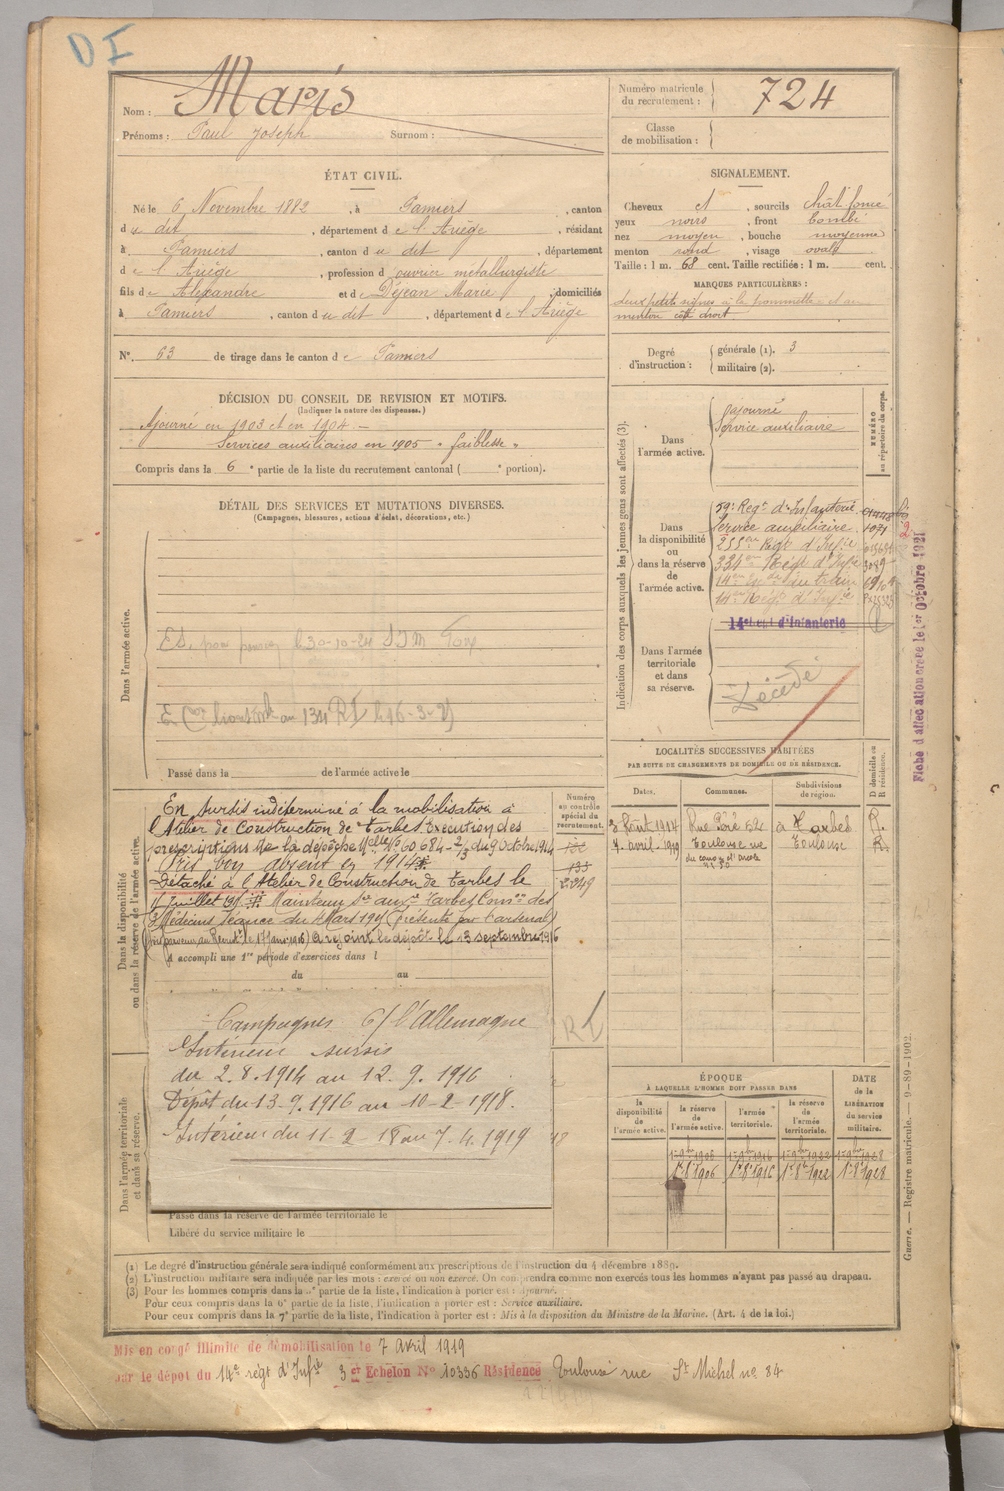 D I
Nom : Maris
Prénoms : Paul Joseph Surnom :
Numéro matricule du recrutement : 724
Classe de mobilisation :
ÉTAT CIVIL.
Né le 6 Novembre 1882, à Pamiers, canton
du dit, département de l'Ariège, résidant
à Pamiers, canton du dit, département
de l'Ariège, profession d'ouvrier métallurgiste
fils de Alexandre et de Déjean Marie, domiciliés
à Pamiers, canton du dit, département de l'Ariège
N° 63 de tirage dans le canton de Pamiers
SIGNALEMENT.
Cheveux et, sourcils chât foncé
yeux noirs, front bombé
nez moyen, bouche moyenne
menton rond, visage ovale
Taille : 1 m. 68 cent. Taille rectifiée : 1 m. cent.
MARQUES PARTICULIÈRES :
deux petits signes à la pommette et au
menton côté droit.
Degré d'instruction : générale (1). 3
militaire (2).
DÉCISION DU CONSEIL DE REVISION ET MOTIFS.
(Indiquer la nature des dispenses.)
Ajourné en 1903 et en 1904.
Services auxiliaires en 1905 " faiblesse "
Compris dans la 6e partie de la liste du recrutement cantonal ( e portion).
DÉTAIL DES SERVICES ET MUTATIONS DIVERSES.
(Campagnes, blessures, actions d'éclat, décorations, etc.)
Dans l'armée active.
30-10-24
au 134 RI le 16-3-
Passé dans la de l'armée active le
Indication des corps auxquels les jeunes gens sont affectés (3).
NUMÉRO au répertoire du corps.
Dans l'armée active.
ajourné
Service auxiliaire
Dans la disponibilité ou dans la réserve de l'armée active.
59e Regt d'Infanterie
Service auxiliaire 1071
255me Regt d'Infie
334me Régt d'Infie 3089
14me du train
14me Régt d'Infie
14e Régt d'Infanterie
Dans l'armée territoriale et dans sa réserve.
Décédé
Fiche d'affectation créée le 1er Octobre 1921
LOCALITÉS SUCCESSIVES HABITÉES
PAR SUITE DE CHANGEMENTS DE DOMICILE OU DE RÉSIDENCE.
Dates. Communes. Subdivisions de région. D domicile ou R résidence.
3 Août 1914 Rue 62 à Tarbes R.
7 avril 1919 Toulouse rue Toulouse R.
Dans la disponibilité ou dans la réserve de l'armée active.
Numéro au contrôle spécial du recrutement.
En sursis indéterminé à la mobilisation à
l'Atelier de Construction de Tarbes. Exécution des
prescriptions de la dépêche Melle N° 60684-2/3 du 9 Octobre 1914
Pris bon absent en 1914
133
Détaché à l'Atelier de Construction de Tarbes le
2249
Juillet Maintenu Sce auxre Tarbes Comon des
Médecins Séance du Mars (Présenté par l'arsenal)
a rejoint le dépôt le 13 septembre 1916
A accompli une 1re période d'exercices dans l
du au
Campagnes C/ l'Allemagne
Intérieur sursis
du 2.8.1914 au 12.9.1916
Dépôt du 13.9.1916 au 10-2-1918.
Intérieur du 11-2 18 au 7.4.1919
RI
Dans l'armée territoriale et dans sa réserve.
Passé dans la réserve de l'armée territoriale le
Libéré du service militaire le
ÉPOQUE À LAQUELLE L'HOMME DOIT PASSER DANS
la disponibilité de l'armée active. la réserve de l'armée active. l'armée territoriale. la réserve de l'armée territoriale.
DATE de la LIBÉRATION du service militaire.
1er 9bre 1906 1er 9bre 1916 1er 9bre 1922 1er 9bre 1928
1er 8bre 1906 1er 8bre 1916 1er 8bre 1922 1er 8bre 1928
Guerre. — Registre matricule. — 9-89-1902.
(1) Le degré d'instruction générale sera indiqué conformément aux prescriptions de l'instruction du 4 décembre 1889.
(2) L'instruction militaire sera indiquée par les mots : exercé ou non exercé. On comprendra comme non exercés tous les hommes n'ayant pas passé au drapeau.
(3) Pour les hommes compris dans la partie de la liste, l'indication à porter est : Ajourné.
Pour ceux compris dans la 6e partie de la liste, l'indication à porter est : Service auxiliaire.
Pour ceux compris dans la 7e partie de la liste, l'indication à porter est : Mis à la disposition du Ministre de la Marine. (Art. 4 de la loi.)
Mis en congé illimité de démobilisation le 7 Avril 1919
par le dépot du 14e régt d'Infie 3 e Echelon N° 10336 Résidence Toulouse rue St Michel no 84